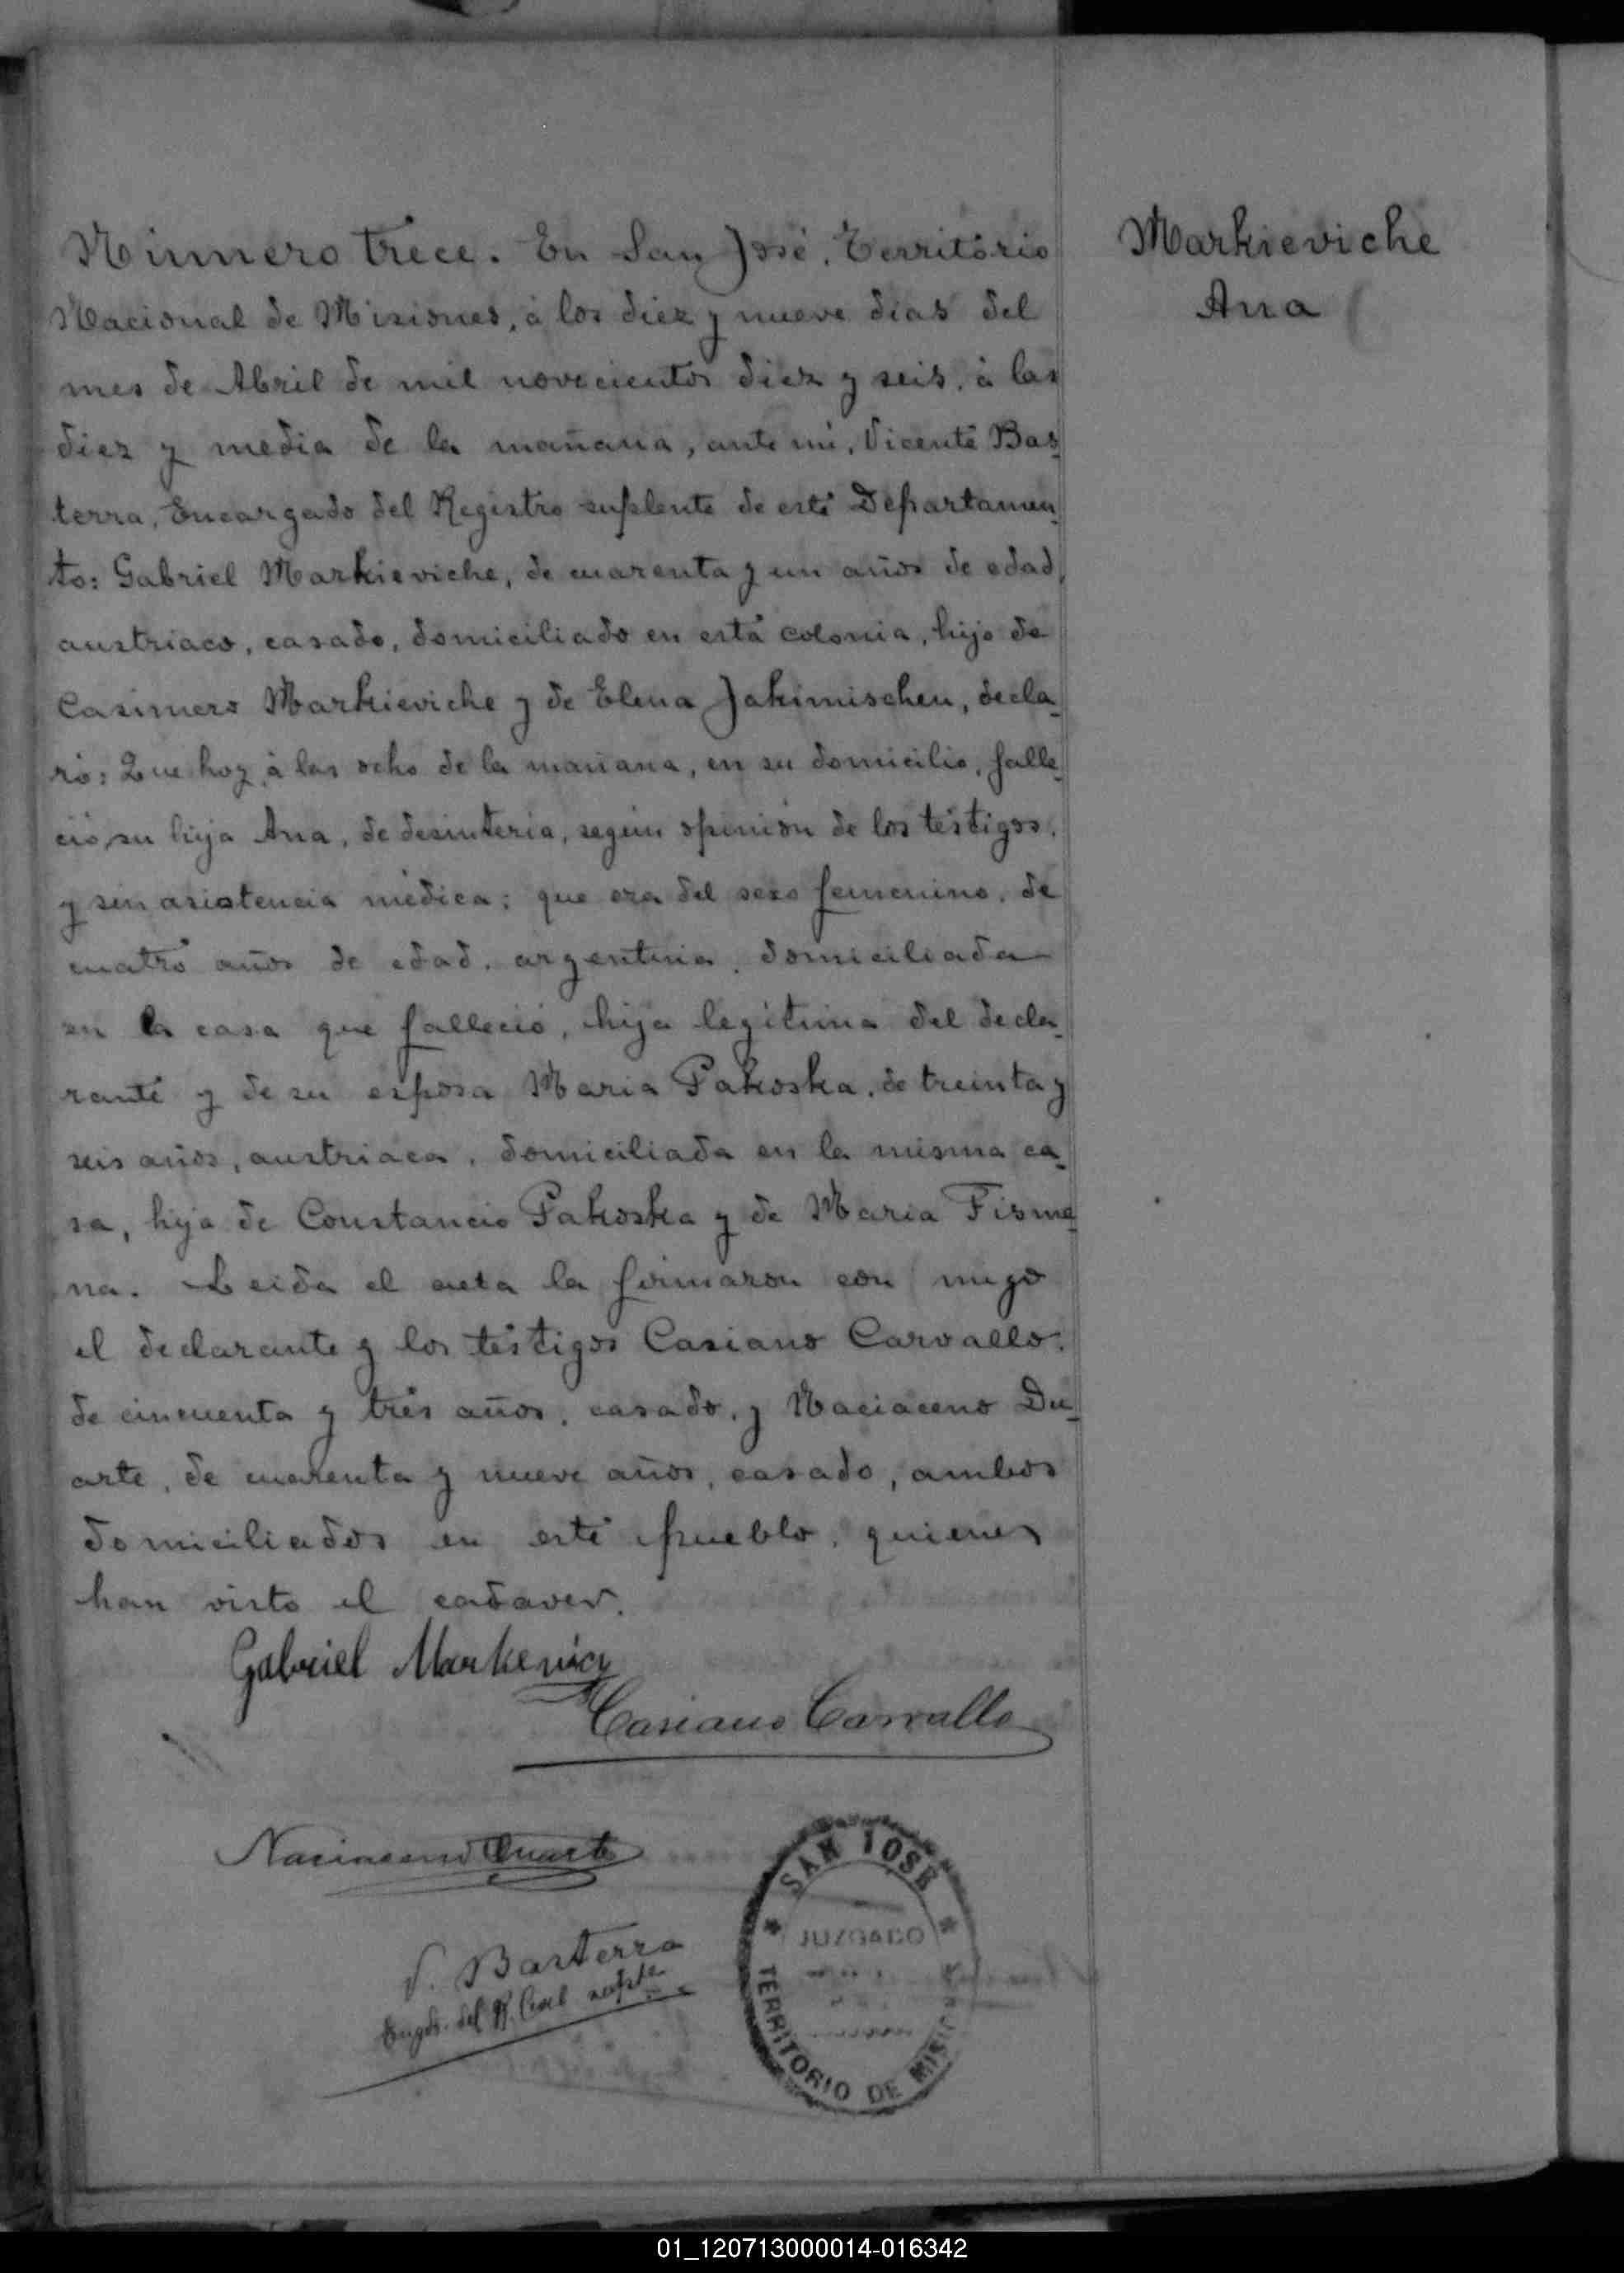 Número trece. En San José, Territorio
Markieviche
Ana
Nacional de Misiones, á los diez y nueve días del
mes de Abril de mil novecientos diez y seis, á las
diez y media de la mañana, ante mí, Vicente Bas-
terra, Encargado del Registro suplente de este Departamen-
to: Gabriel Markieviche, de cuarenta y un años de edad,
austriaco, casado, domiciliado en esta colonia, hijo de
Casimero Markieviche y de Elena Jakimischen, decla-
ró: Que hoy á las ocho de la mañana, en su domicilio, falle-
ció su hija Ana, de desinteria, según opinión de los testigos,
y sin asistencia médica; que era del sexo femenino, de
cuatro años de edad, argentina, domiciliada
en la casa que falleció, hija legítima del decla-
rante y de su esposa Maria Pakoska, de treinta y
seis años, austriaca, domiciliada en la misma ca-
sa, hija de Constancio Pakoska y de Maria Fisme-
na. Leida el acta la firmaron con migo
el declarante y los testigos Casiano Carvallo,
de cincuenta y tres años, casado, y Naciaceno Du-
arte, de cuarenta y nueve años, casado, ambos
domiciliados en este pueblo, quienes
han visto el cadaver.
Gabriel Markevicz
Casiano Carvallo
Naciaceno Duarte
V. Basterra
Engdo. del R. Civil suplte
SAN JOSE
JUZGADO
TERRITORIO DE
01_120713000014-016342